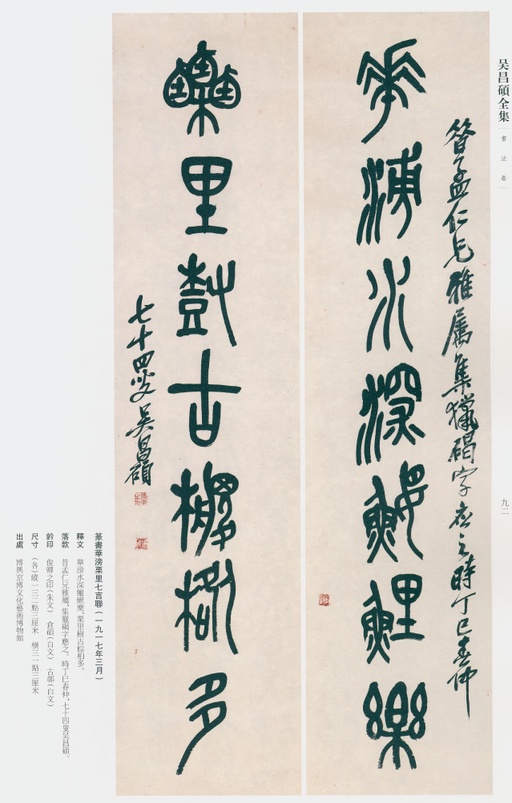 吴昌碩全集
書法卷
九二
孟仁兄雅屬集獵碣字應之時丁巳春仲
華 水深鰋鯉樂
栗里尌古 多
七十四叟吴昌碩
篆書華滂栗里七言聯（一九一七年三月）
釋文 華滂水深鰋鯉樂，栗里樹古 多。
落款 孟仁兄雅屬，集獵碣字應之。時丁巳春仲，七十四叟吴昌碩。
鈐印 俊卿之印（朱文） 倉碩（白文） （白文）
尺寸 （各）縱一三二點三厘米 橫三一點三厘米
出處 博興京博文化藝術博物館